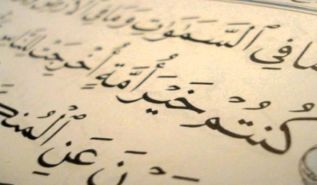 مَا فِي ٱلسَّمَٰوَٰتِ وَمَا فِي ٱلۡأَرۡضِ
كُنتُمۡ خَيۡرَ أُمَّةٍ أُخۡرِجَتۡ لِلنَّاسِ
نَ عَنِ ٱلۡمُنكَ